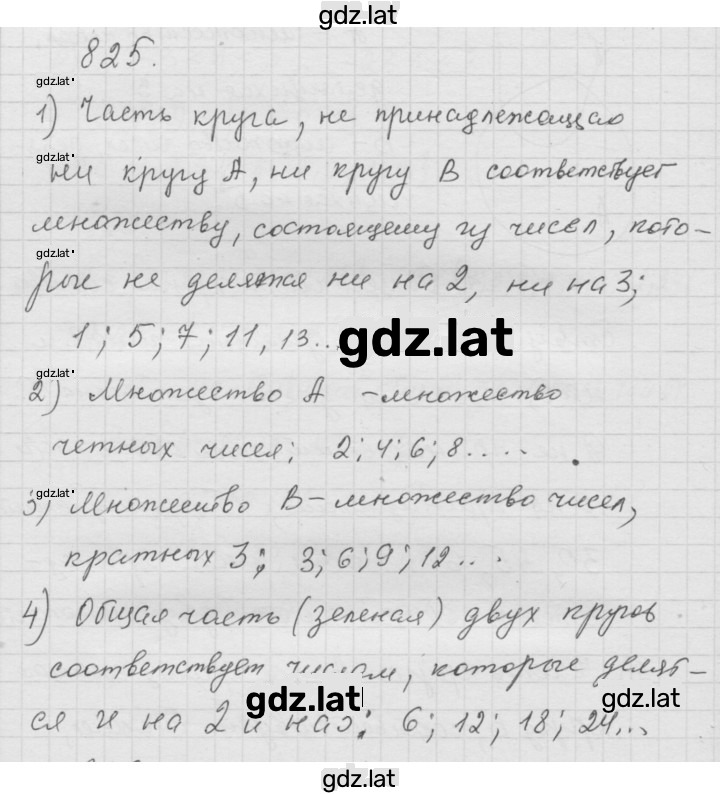 gdz.lat
825.
gdz.lat
1) Часть круга, не принадлежащая
gdz.lat
ни кругу A, ни кругу B соответствует
множеству, состоящему из чисел, кото-
gdz.lat
рые не делятся ни на 2, ни на 3;
1; 5; 7; 11, 13...
gdz.lat
2) Множество A - множество
gdz.lat
четных чисел; 2; 4; 6; 8....
gdz.lat
3) Множество B - множество чисел,
кратных 3; 3; 6; 9; 12...
gdz.lat
4) Общая часть (зеленая) двух кругов
соответствует числам, которые делят-
gdz.lat
gdz.lat
ся и на 2 и на 3: 6; 12; 18; 24...
gdz.lat